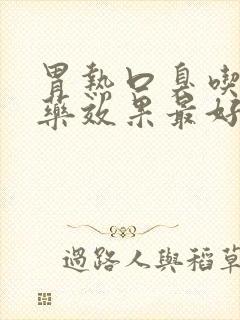 胃熱口臭喫
藥效果最好
過路人與稻草